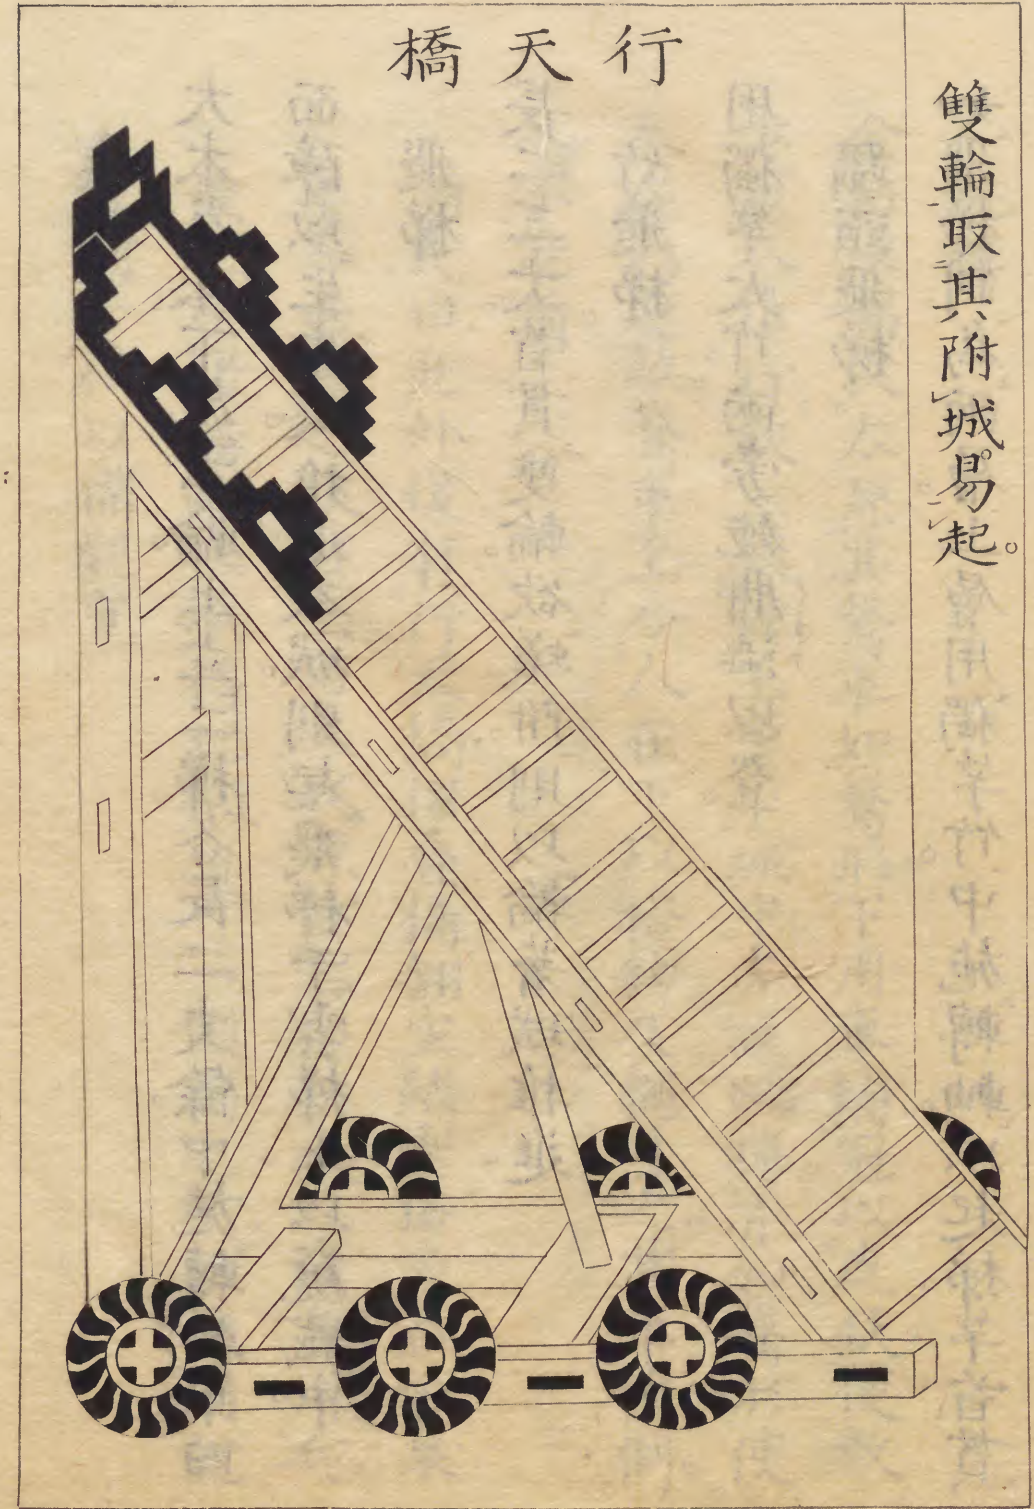 雙輪取其附城易起。
行天橋